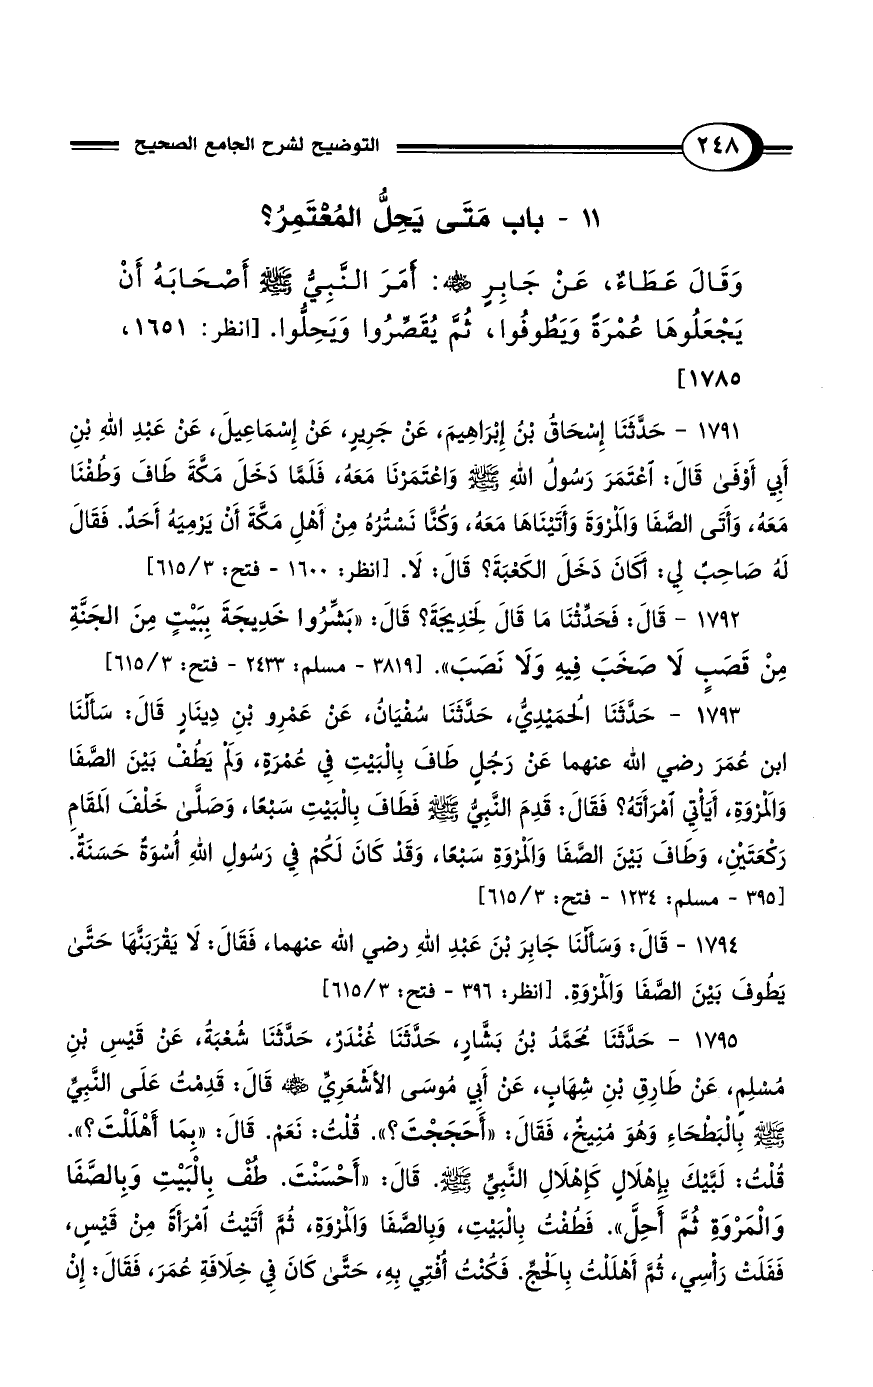 ٢٤٨ التوضيح لشرح الجامع الصحيح
١١ - باب مَتَى يَحِلُّ المُعْتَمِرُ؟
وَقَالَ عَطَاءٌ، عَنْ جَابِرٍ رضي الله عنه: أَمَرَ النَّبِيُّ ﷺ أَصْحَابَهُ أَنْ
يَجْعَلُوهَا عُمْرَةً وَيَطُوفُوا، ثُمَّ يُقَصِّرُوا وَيَحِلُّوا. [انظر: ١٦٥١،
١٧٨٥]
١٧٩١ - حَدَّثَنَا إِسْحَاقُ بْنُ إِبْرَاهِيمَ، عَنْ جَرِيرٍ، عَنْ إِسْمَاعِيلَ، عَنْ عَبْدِ اللهِ بْنِ
أَبِي أَوْفَىٰ قَالَ: ٱعْتَمَرَ رَسُولُ اللهِ ﷺ وَاعْتَمَرْنَا مَعَهُ، فَلَمَّا دَخَلَ مَكَّةَ طَافَ وَطُفْنَا
مَعَهُ، وَأَتَى الصَّفَا وَالْمَرْوَةَ وَأَتَيْنَاهَا مَعَهُ، وَكُنَّا نَسْتُرُهُ مِنْ أَهْلِ مَكَّةَ أَنْ يَرْمِيَهُ أَحَدٌ. فَقَالَ
لَهُ صَاحِبٌ لِي: أَكَانَ دَخَلَ الكَعْبَةَ؟ قَالَ: لَا. [انظر: ١٦٠٠ - فتح: ٣/ ٦١٥]
١٧٩٢ - قَالَ: فَحَدِّثْنَا مَا قَالَ لِخَدِيجَةَ؟ قَالَ: «بَشِّرُوا خَدِيجَةَ بِبَيْتٍ مِنَ الجَنَّةِ
مِنْ قَصَبٍ لَا صَخَبَ فِيهِ وَلَا نَصَبَ». [٣٨١٩ - مسلم: ٢٤٣٣ - فتح: ٣/ ٦١٥]
١٧٩٣ - حَدَّثَنَا الحُمَيْدِيُّ، حَدَّثَنَا سُفْيَانُ، عَنْ عَمْرِو بْنِ دِينَارٍ قَالَ: سَأَلْنَا
ابن عُمَرَ رضي الله عنهما عَنْ رَجُلٍ طَافَ بِالْبَيْتِ فِي عُمْرَةٍ، وَلَمْ يَطُفْ بَيْنَ الصَّفَا
وَالْمَرْوَةِ، أَيَأْتِي ٱمْرَأَتَهُ؟ فَقَالَ: قَدِمَ النَّبِيُّ ﷺ فَطَافَ بِالْبَيْتِ سَبْعًا، وَصَلَّىٰ خَلْفَ المَقَامِ
رَكْعَتَيْنِ، وَطَافَ بَيْنَ الصَّفَا وَالْمَرْوَةِ سَبْعًا، وَقَدْ كَانَ لَكُمْ فِي رَسُولِ اللهِ أُسْوَةٌ حَسَنَةٌ.
[٣٩٥ - مسلم: ١٢٣٤ - فتح: ٣/ ٦١٥]
١٧٩٤ - قَالَ: وَسَأَلْنَا جَابِرَ بْنَ عَبْدِ اللهِ رضي الله عنهما، فَقَالَ: لَا يَقْرَبَنَّهَا حَتَّىٰ
يَطُوفَ بَيْنَ الصَّفَا وَالْمَرْوَةِ. [انظر: ٣٩٦ - فتح: ٣/ ٦١٥]
١٧٩٥ - حَدَّثَنَا مُحَمَّدُ بْنُ بَشَّارٍ، حَدَّثَنَا غُنْدَرٌ، حَدَّثَنَا شُعْبَةُ، عَنْ قَيْسِ بْنِ
مُسْلِمٍ، عَنْ طَارِقِ بْنِ شِهَابٍ، عَنْ أَبِي مُوسَى الأَشْعَرِيِّ رضي الله عنه قَالَ: قَدِمْتُ عَلَى النَّبِيِّ
ﷺ بِالْبَطْحَاءِ وَهُوَ مُنِيخٌ، فَقَالَ: «أَحَجَجْتَ؟». قُلْتُ: نَعَمْ. قَالَ: «بِمَا أَهْلَلْتَ؟».
قُلْتُ: لَبَّيْكَ بِإِهْلَالٍ كَإِهْلَالِ النَّبِيِّ ﷺ. قَالَ: «أَحْسَنْتَ. طُفْ بِالْبَيْتِ وَبِالصَّفَا
وَالْمَرْوَةِ ثُمَّ أَحِلَّ». فَطُفْتُ بِالْبَيْتِ، وَبِالصَّفَا وَالْمَرْوَةِ، ثُمَّ أَتَيْتُ ٱمْرَأَةً مِنْ قَيْسٍ،
فَفَلَتْ رَأْسِي، ثُمَّ أَهْلَلْتُ بِالْحَجِّ. فَكُنْتُ أُفْتِي بِهِ، حَتَّىٰ كَانَ فِي خِلَافَةِ عُمَرَ، فَقَالَ: إِنْ